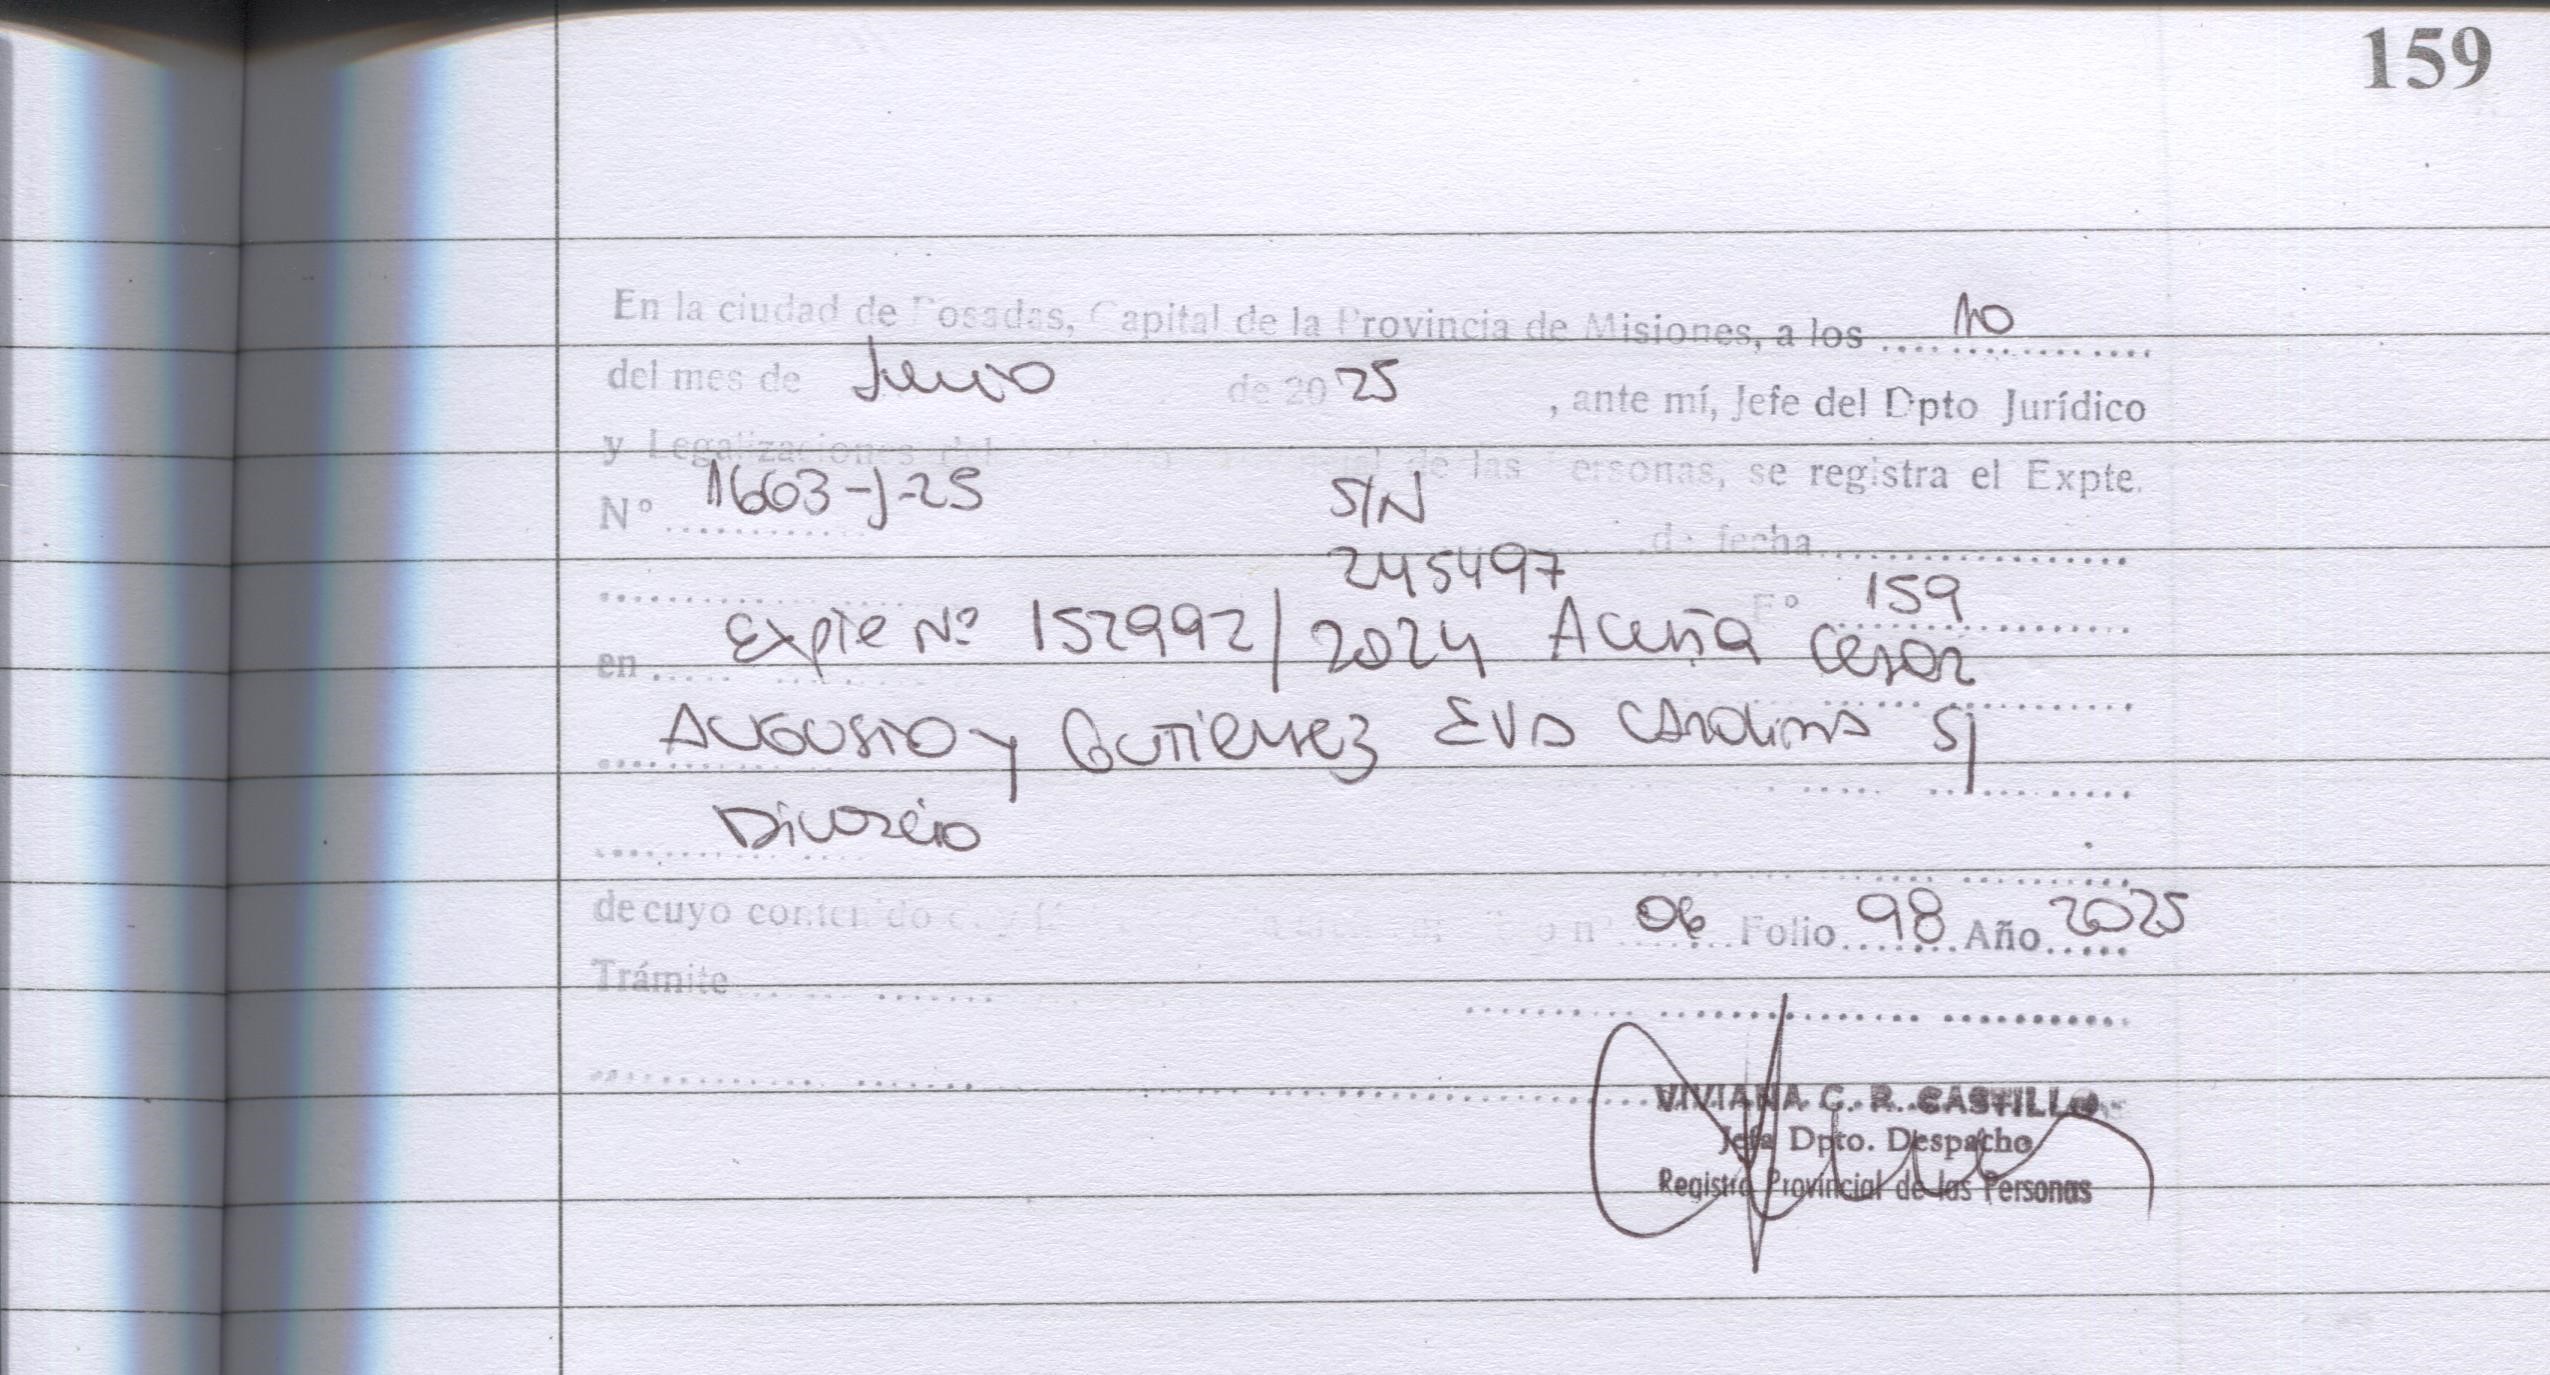 159
En la ciudad de Posadas, Capital de la Provincia de Misiones, a los 10
del mes de Junio de 2025, ante mí, Jefe del Dpto Jurídico
y Legalizaciones del de las Personas, se registra el Expte.
Nº 1663-J-25 S/N de fecha
245497 Fº 159
en Expte Nº 152992/2024 Acuña Cesar
Augusto y Gutierrez Eva Carolina S/
Divorcio
de cuyo contenido 06 Folio 98 Año 2025
Trámite
VIVIANA C. R. CASTILLO
Jefa Dpto. Despacho
Registro Provincial de las Personas